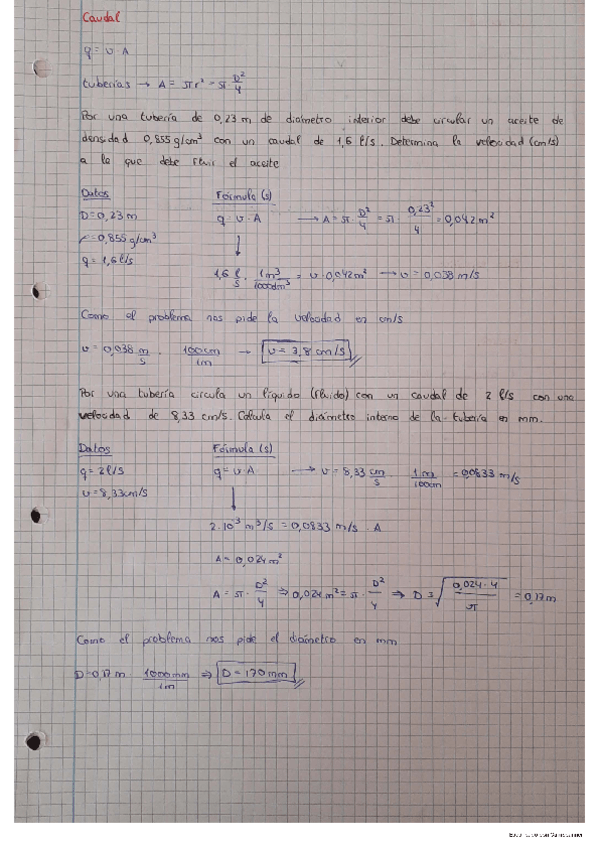 Caudal
q = v · A
tuberías → A = π r² = π · D²/4
Por una tubería de 0,23 m de diámetro interior debe circular un aceite de
densidad 0,855 g/cm³ con un caudal de 1,6 l/s. Determina la velocidad (cm/s)
a la que debe fluir el aceite
Datos Fórmula (s)
D = 0,23 m q = v · A → A = π · D²/4 = π · 0,23²/4 = 0,042 m²
= 0,855 g/cm³
q = 1,6 l/s
1,6 l/s · 1m³/1000dm³ = v · 0,042 m² → v = 0,038 m/s
Como el problema nos pide la velocidad en cm/s
v = 0,038 m/s · 100cm/1m → v = 3,8 cm/s
Por una tubería circula un líquido (fluido) con un caudal de 2 l/s con una
velocidad de 8,33 cm/s. Calcula el diámetro interno de la tubería en mm.
Datos Fórmula (s)
q = 2 l/s q = v · A → v = 8,33 cm/s · 1m/100cm = 0,0833 m/s
v = 8,33 cm/s
2 · 10⁻³ m³/s = 0,0833 m/s · A
A = 0,024 m²
A = π · D²/4 ⇒ 0,024 m² = π · D²/4 ⇒ D = √(0,024 · 4/π) = 0,17 m
Como el problema nos pide el diámetro en mm
D = 0,17 m 1000mm/1m ⇒ D = 170 mm